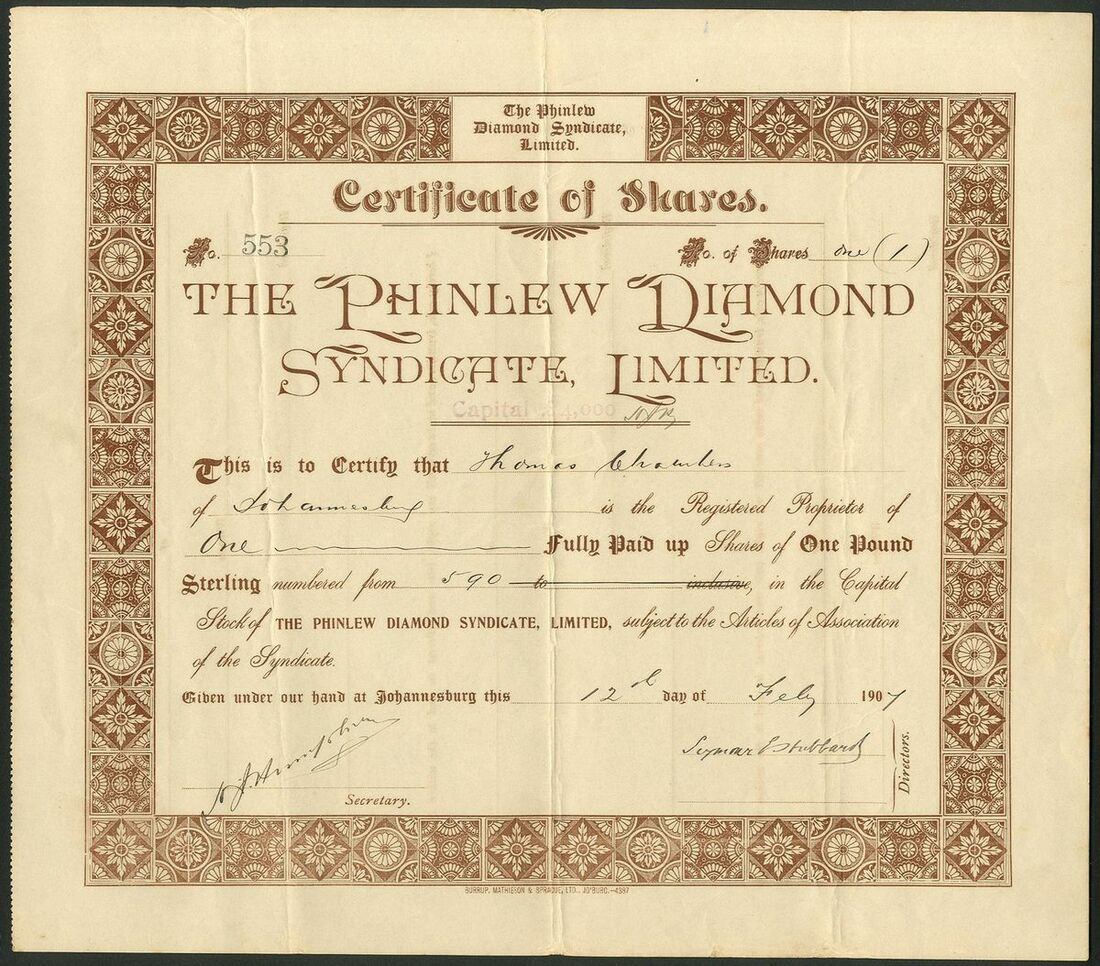 The Phinlew
Diamond Syndicate,
Limited.
Certificate of Shares.
No. 553 No. of Shares one (1)
THE PHINLEW DIAMOND
SYNDICATE, LIMITED.
Capital £4,000
This is to Certify that Thomas Chambers
of Johannesburg is the Registered Proprietor of
One Fully Paid up Shares of One Pound
Sterling numbered from 590 to inclusive, in the Capital
Stock of THE PHINLEW DIAMOND SYNDICATE, LIMITED, subject to the Articles of Association
of the Syndicate.
Given under our hand at Johannesburg this 12th day of Feby 1907
Seymour Stubbard
Secretary.
Directors.
BURRUP, MATHIESON & SPRAGUE, LTD., JO'BURG.—4387